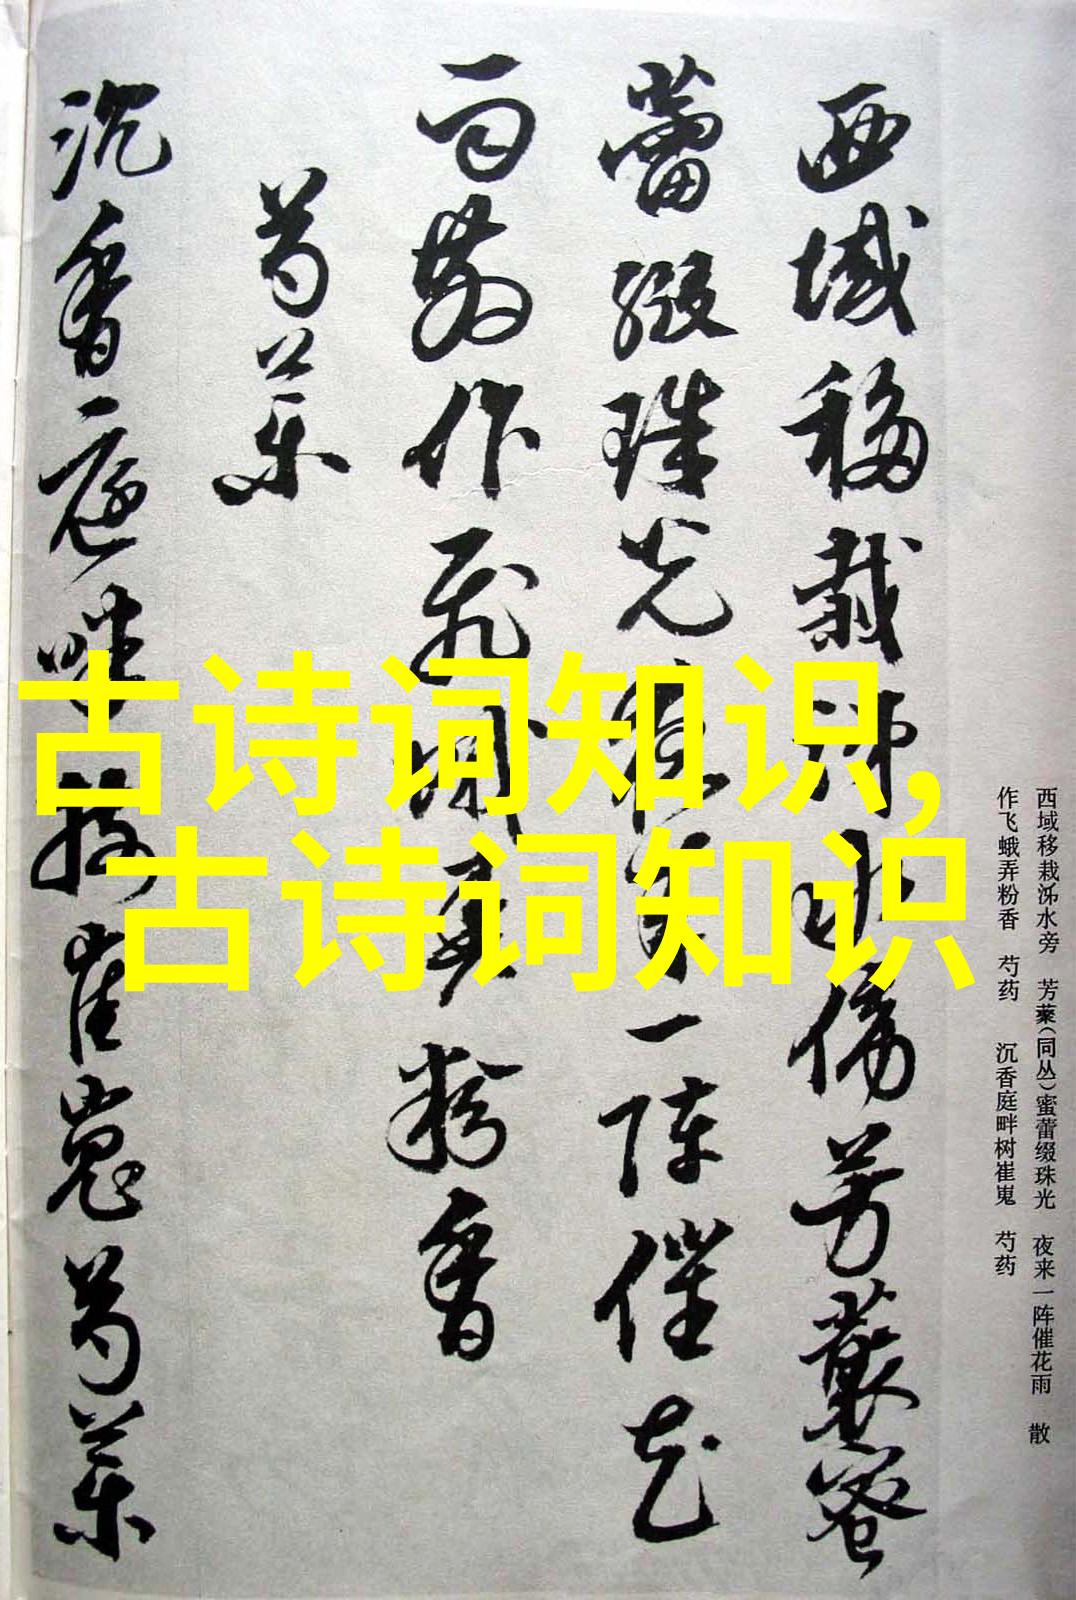 西域移栽沵水傍芳藂蜜
蕾缀珠光夜来一阵催花
雨散作飞蛾弄粉香
芍药
沉香庭畔树崔嵬芍药
西域移栽泲水旁 芳藂(同丛)蜜蕾缀珠光 夜来一阵催花雨 散
作飞蛾弄粉香 芍药 沉香庭畔树崔嵬 芍药
古诗词知识,
古诗词知识